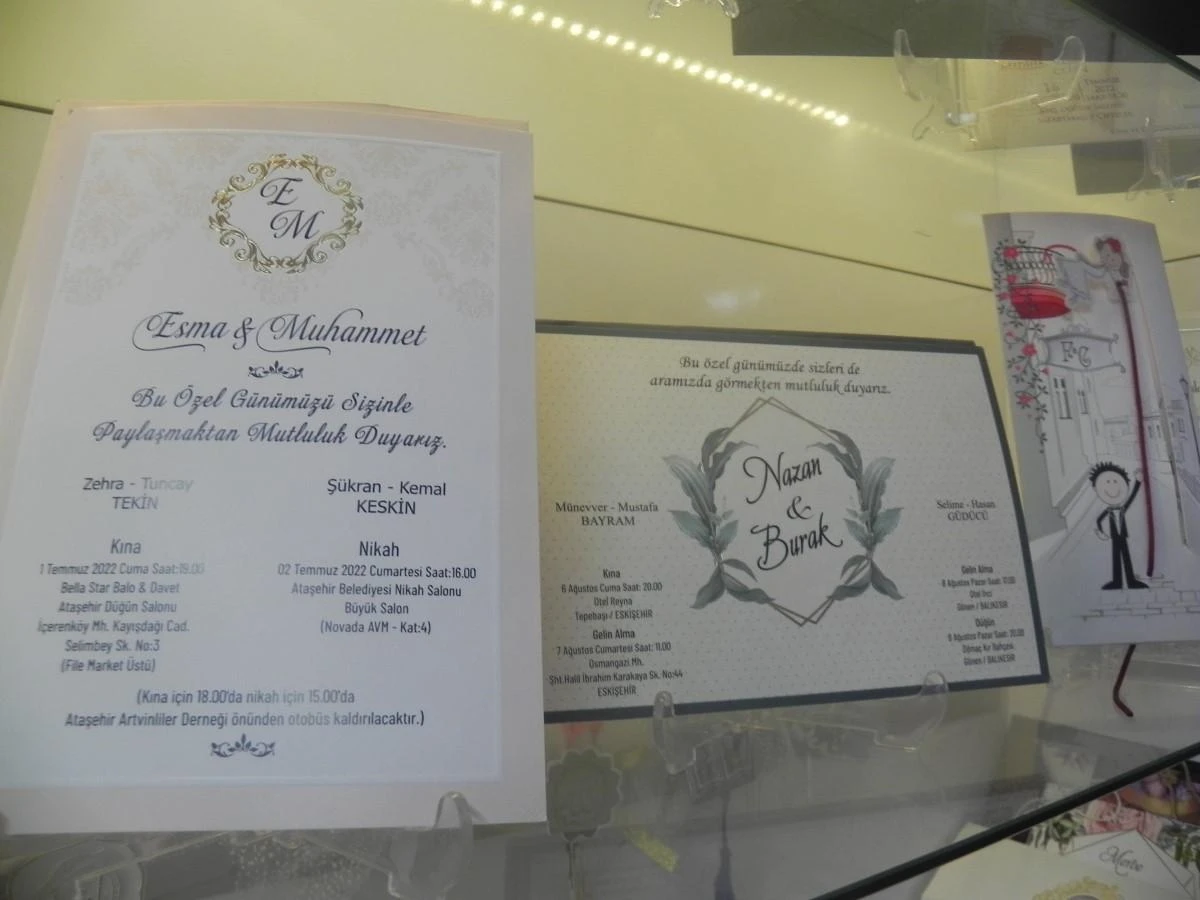 E
M
Esma & Muhammet
Bu Özel Günümüzü Sizinle
Paylaşmaktan Mutluluk Duyarız.
Zehra - Tuncay
TEKİN
Şükran - Kemal
KESKİN
Kına
1 Temmuz 2022 Cuma Saat:19.00
Bella Star Balo & Davet
Ataşehir Düğün Salonu
İçerenköy Mh. Kayışdağı Cad.
Selimbey Sk. No:3
(File Market Üstü)
Nikah
02 Temmuz 2022 Cumartesi Saat:16.00
Ataşehir Belediyesi Nikah Salonu
Büyük Salon
(Novada AVM - Kat:4)
(Kına için 18.00'da nikah için 15.00'da
Ataşehir Artvinliler Derneği önünden otobüs kaldırılacaktır.)
Bu özel günümüzde sizleri de
aramızda görmekten mutluluk duyarız.
Nazan
&
Burak
Münevver - Mustafa
BAYRAM
Selime - Hasan
GÜDÜCÜ
Kına
6 Ağustos Cuma Saat: 20.00
Otel Reyna
Tepebaşı / ESKİŞEHİR
Gelin Alma
7 Ağustos Cumartesi Saat: 11.00
Osmangazi Mh.
Şht.Halil İbrahim Karakaya Sk. No:44
ESKİŞEHİR
Gelin Alma
8 Ağustos Pazar Saat: 17.00
Otel İnci
Gönen / BALIKESİR
Düğün
8 Ağustos Pazar Saat: 20.00
Kır Bahçesi
Gönen / BALIKESİR
F&C
2022
Merve